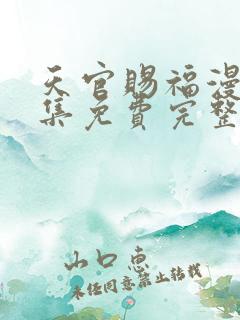 天官赐福漫
集免费完整
山口惠
未经同意禁止转载